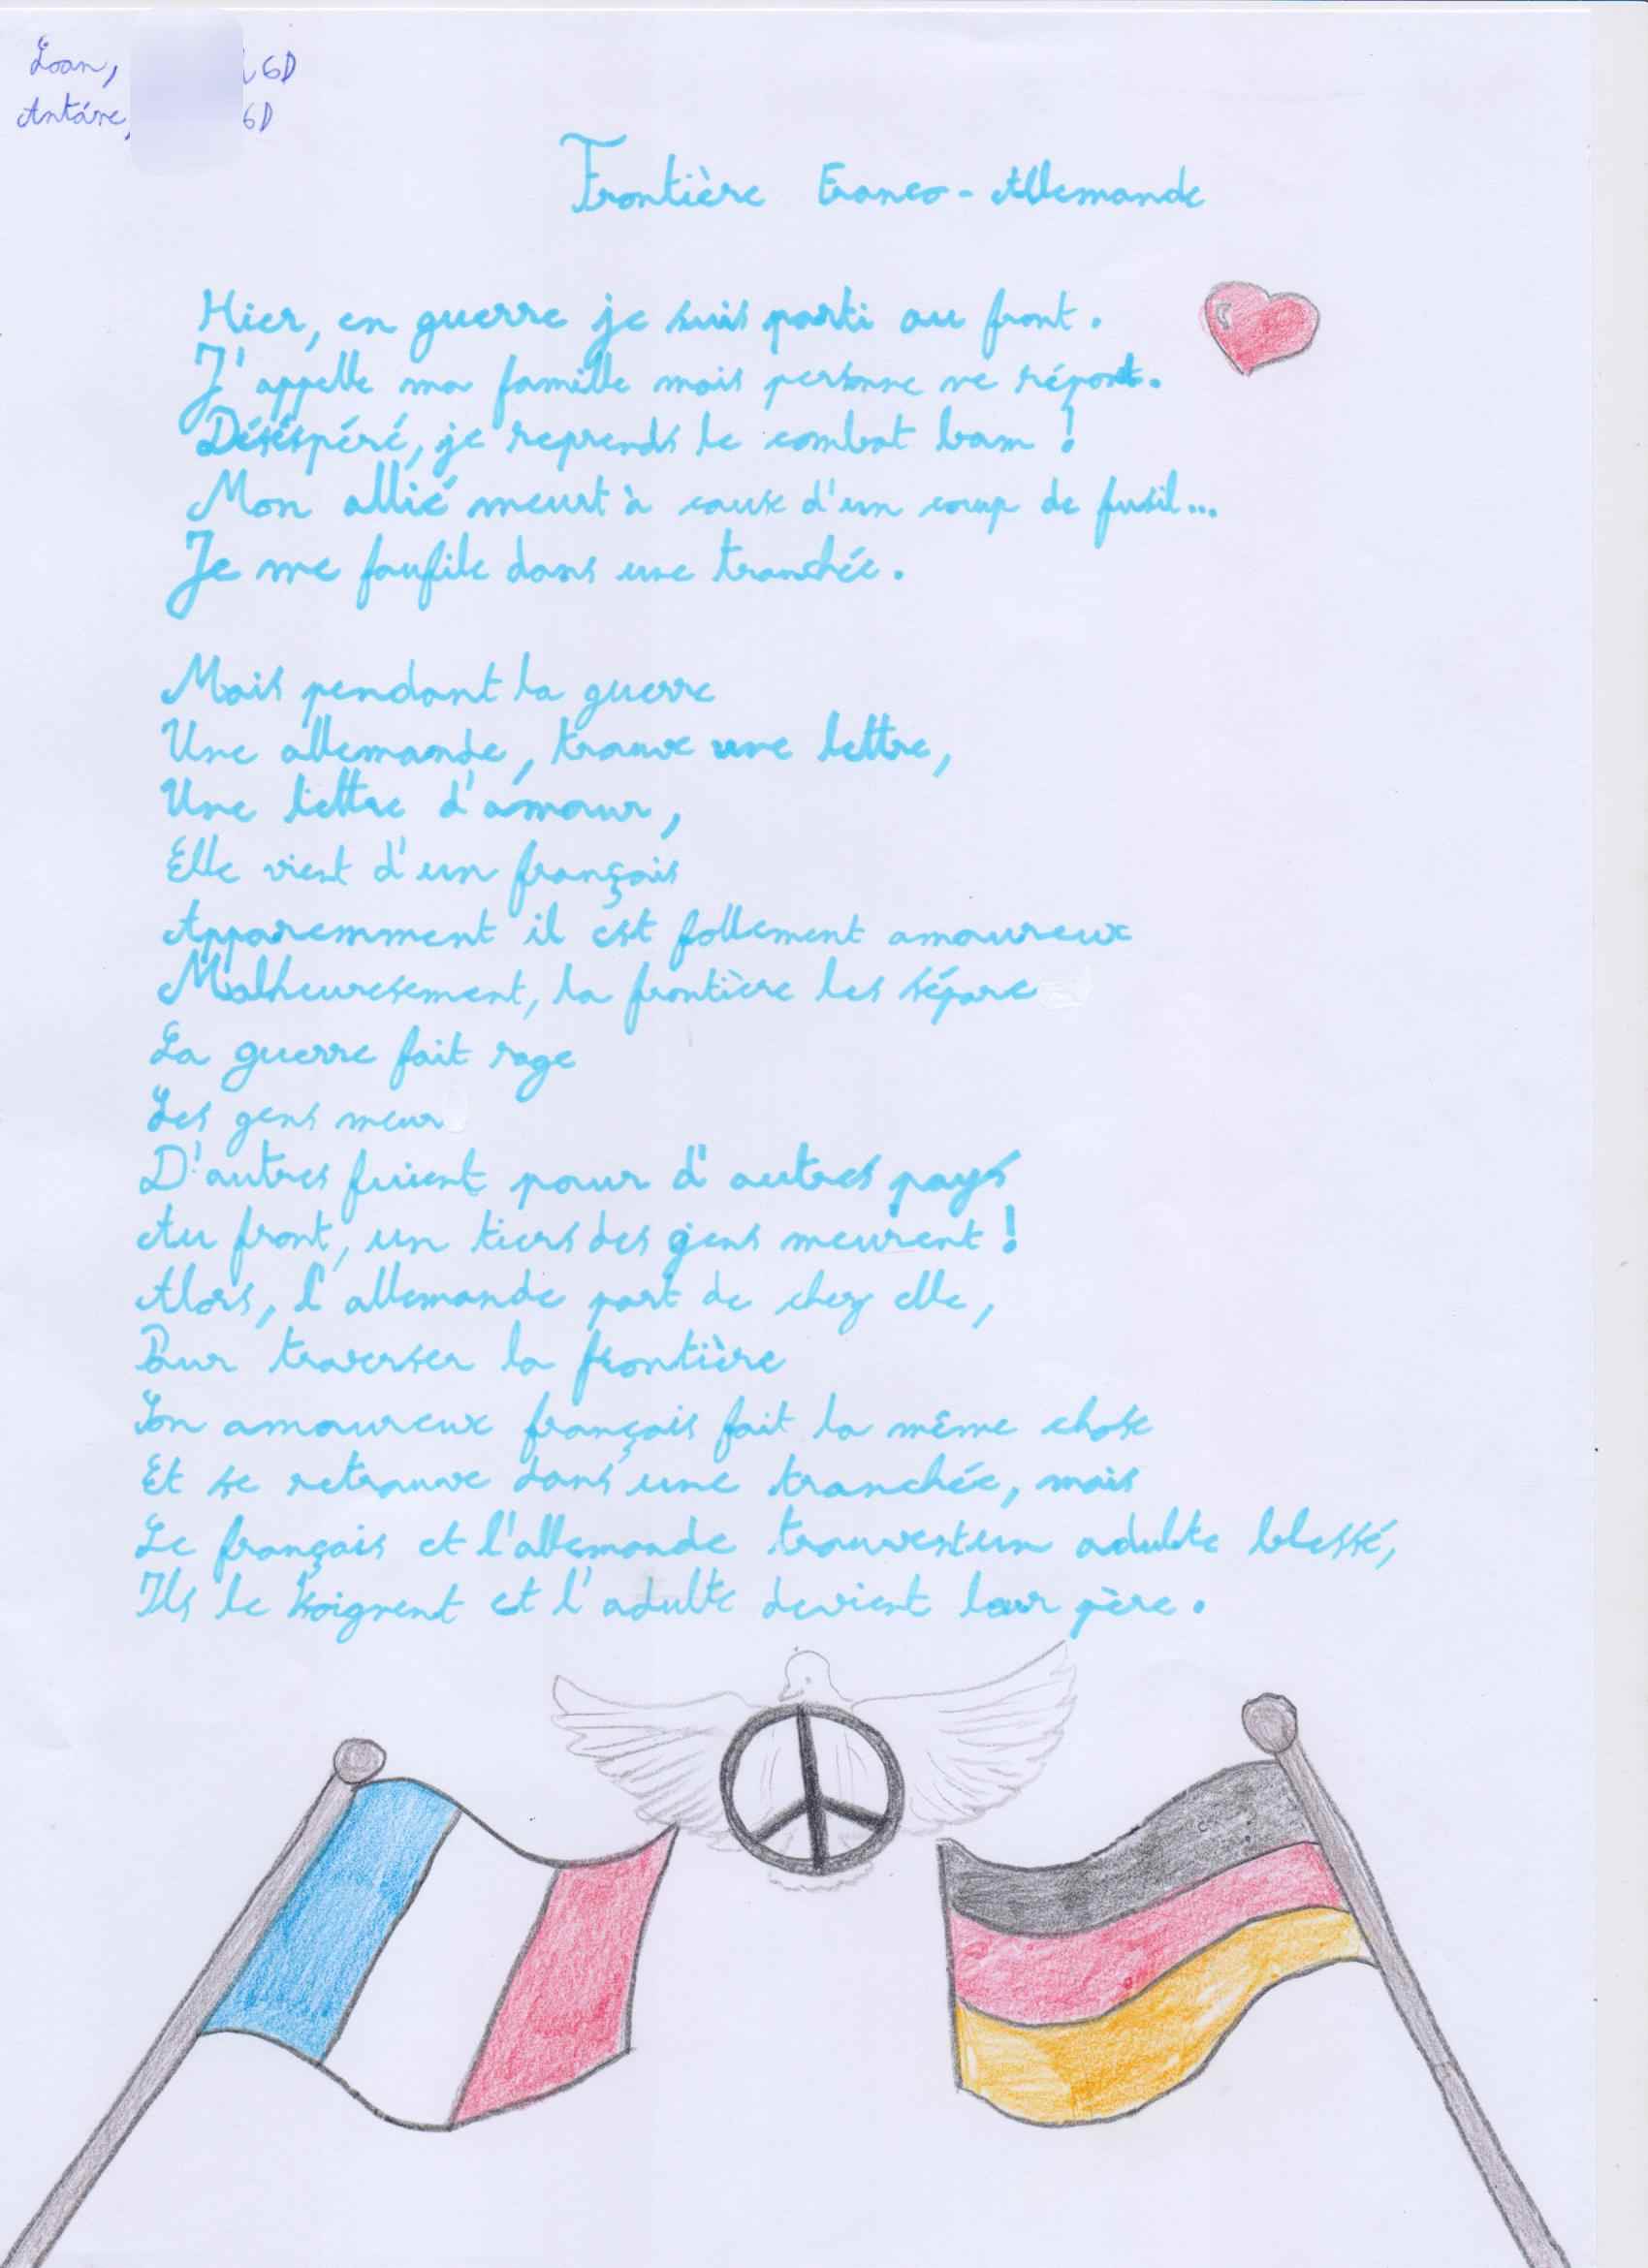 Loan, 6D
Antáre, 6D
Frontière Franco-Allemande
Hier, en guerre je suis parti au front.
J'appelle ma famille mais personne ne répont.
Déséspéré, je reprends le combat bam !
Mon allié meurt à cause d'un coup de fusil...
Je me faufile dans une tranchée.
Mais pendant la guerre
Une allemande, trouve une lettre,
Une lettre d'amour,
Elle vient d'un français
Apparemment il est follement amoureux
Malheuresement, la frontière les sépare
La guerre fait rage
Les gens meur
D'autres fuient pour d'autres pays
Au front, un tiers des gens meurent !
Alors, l'allemande part de chez elle,
Pour traverser la frontière
Son amoureux français fait la même chose
Et se retrouve dans une tranchée, mais
Le français et l'allemande trouvent un adulte blessé,
Ils le soignent et l'adulte devient leur père.